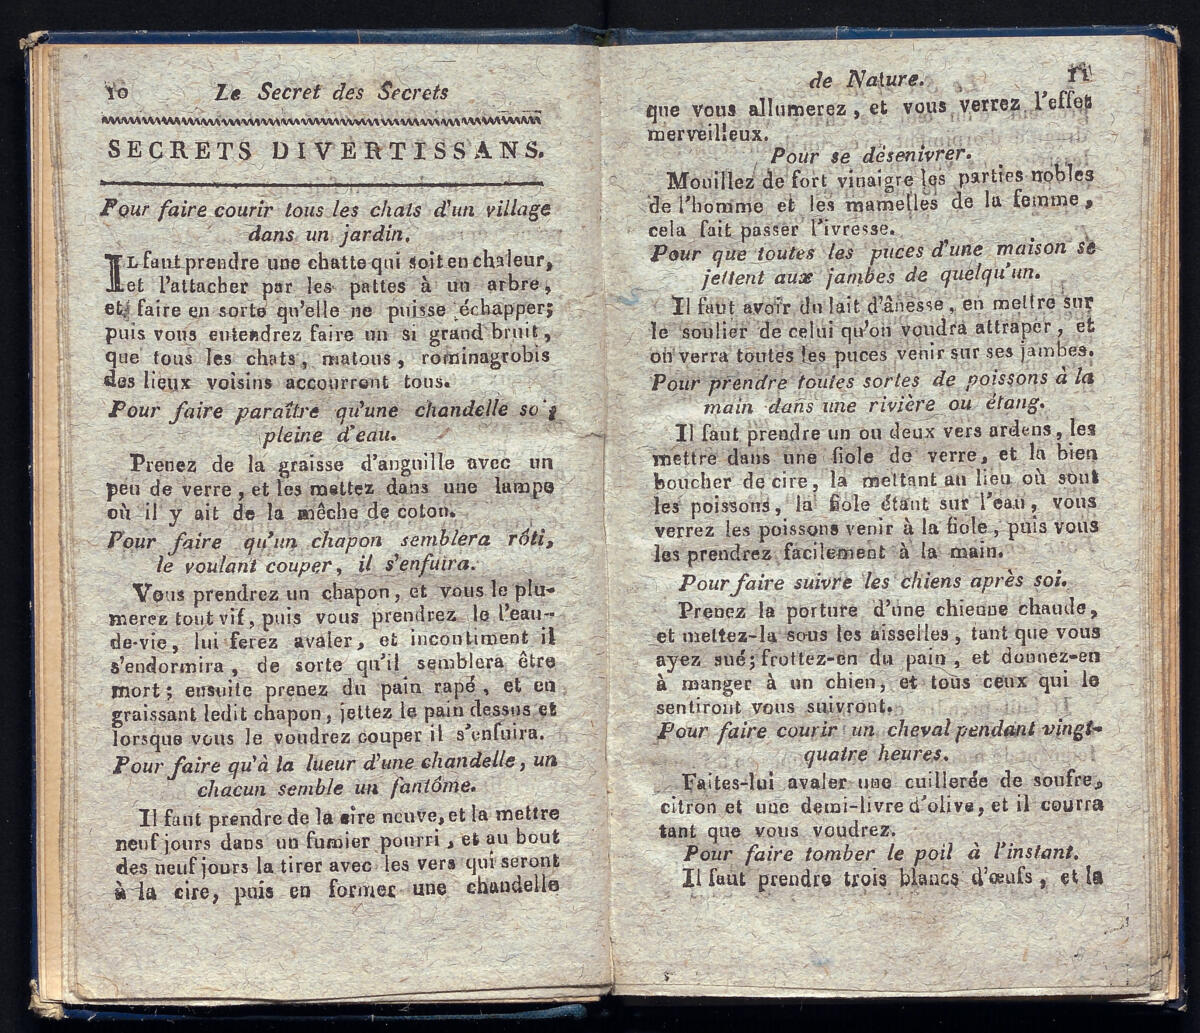 10 Le Secret des Secrets
SECRETS DIVERTISSANS.
Pour faire courir tous les chats d'un village
dans un jardin.
IL faut prendre une chatte qui soit en chaleur,
et l'attacher par les pattes à un arbre,
et faire en sorte qu'elle ne puisse échapper;
puis vous entendrez faire un si grand bruit,
que tous les chats, matous, rominagrobis
des lieux voisins accourront tous.
Pour faire paraître qu'une chandelle
pleine d'eau.
Prenez de la graisse d'anguille avec un
peu de verre, et les mettez dans une lampe
où il y ait de la mêche de coton.
Pour faire qu'un chapon semblera rôti,
le voulant couper, il s'enfuira.
Vous prendrez un chapon, et vous le plu-
merez tout vif, puis vous prendrez le l'eau-
de-vie, lui ferez avaler, et incontiment il
s'endormira, de sorte qu'il semblera être
mort; ensuite prenez du pain rapé, et en
graissant ledit chapon, jettez le pain dessus et
lorsque vous le voudrez couper il s'enfuira.
Pour faire qu'à la lueur d'une chandelle, un
chacun semble un fantôme.
Il faut prendre de la cire neuve, et la mettre
neuf jours dans un fumier pourri, et au bout
des neuf jours la tirer avec les vers qui seront
à la cire, puis en former une chandelle
de Nature. 11
que vous allumerez, et vous verrez l'effet
merveilleux.
Pour se désenivrer.
Mouillez de fort vinaigre les parties nobles
de l'homme et les mamelles de la femme,
cela fait passer l'ivresse.
Pour que toutes les puces d'une maison se
jettent aux jambes de quelqu'un.
Il faut avoir du lait d'ânesse, en mettre sur
le soulier de celui qu'on voudra attraper, et
on verra toutes les puces venir sur ses jambes.
Pour prendre toutes sortes de poissons à la
main dans une rivière ou étang.
Il faut prendre un ou deux vers ardens, les
mettre dans une fiole de verre, et la bien
boucher de cire, la mettant au lieu où sont
les poissons, la fiole étant sur l'eau, vous
verrez les poissons venir à la fiole, puis vous
les prendrez facilement à la main.
Pour faire suivre les chiens après soi.
Prenez la porture d'une chienne chaude,
et mettez-la sous les aisselles, tant que vous
ayez sué; frottez-en du pain, et donnez-en
à manger à un chien, et tous ceux qui le
sentiront vous suivront.
Pour faire courir un cheval pendant vingt-
quatre heures.
Faites-lui avaler une cuillerée de soufre,
citron et une demi-livre d'olive, et il courra
tant que vous voudrez.
Pour faire tomber le poil à l'instant.
Il faut prendre trois blancs d'œufs, et la